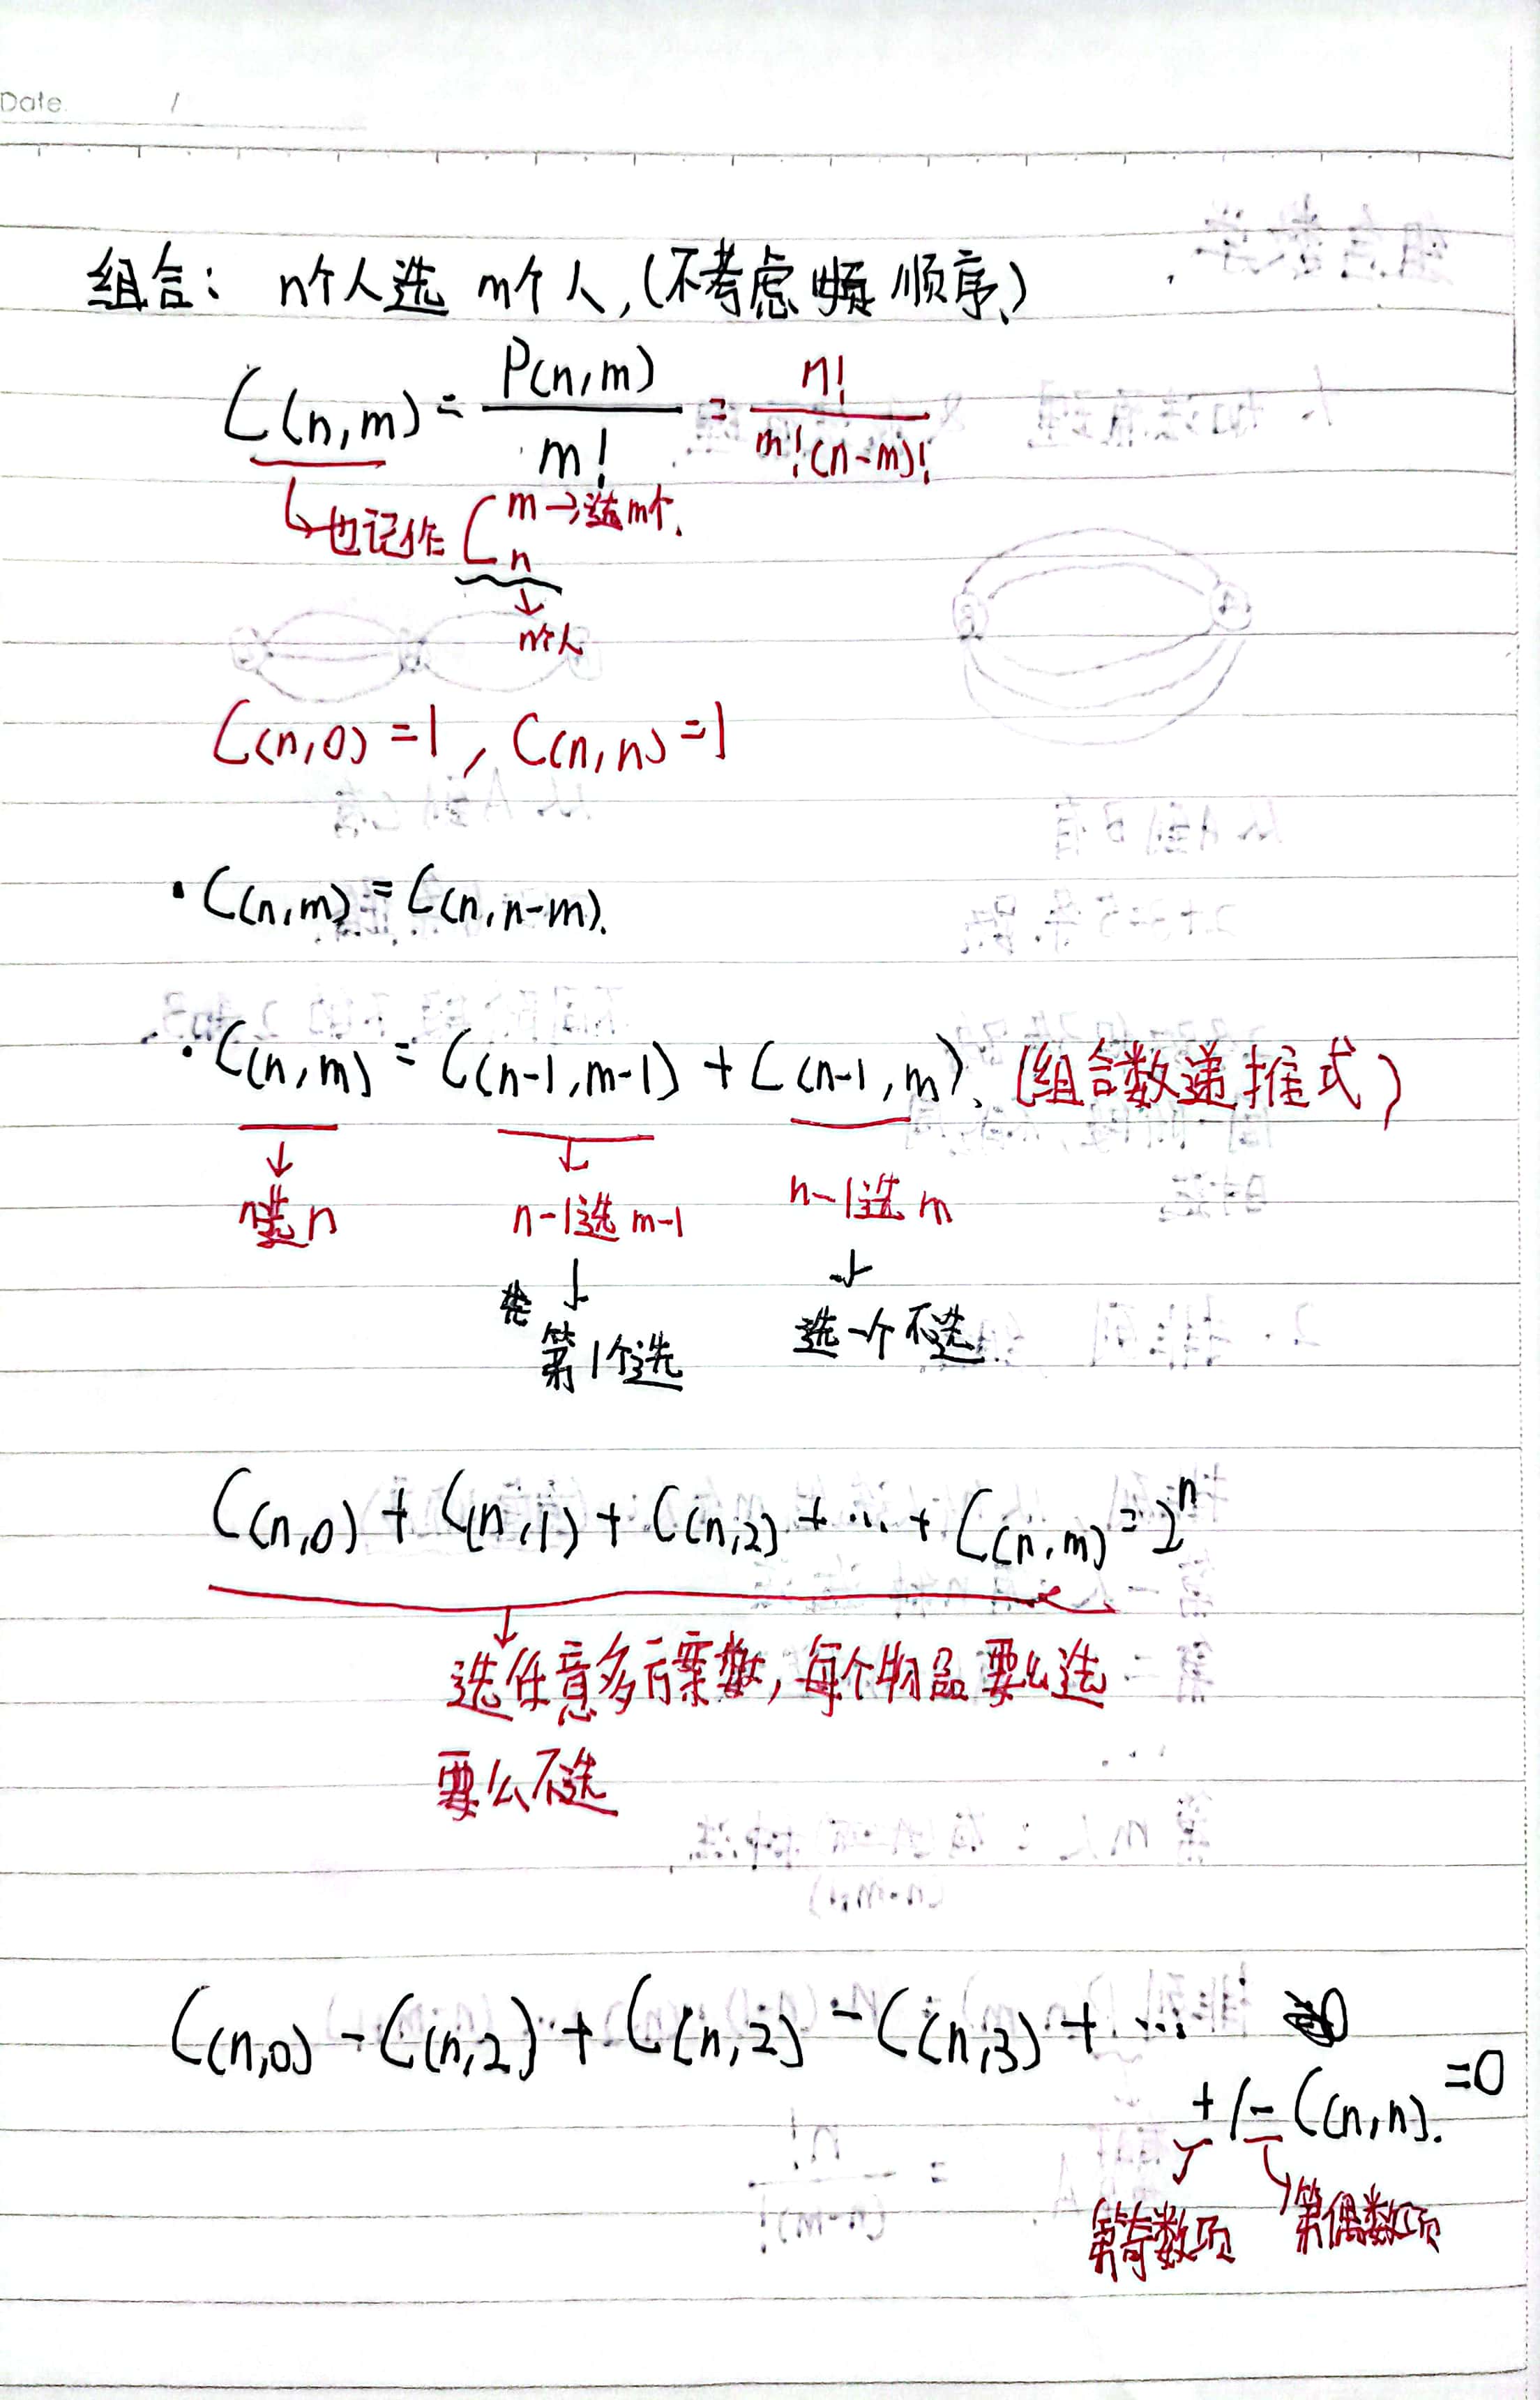 Date. /
组合: n个人选 m个人,(不考虑顺序、)
C(n,m) = P(n,m) / m! = n! / m!(n-m)!
↳也记作 C_n^m →选m个.
↓
n个人
C(n,0) =1 , C(n,n) =1
· C(n,m) = C(n,n-m).
· C(n,m) = C(n-1,m-1) + C(n-1,m). (组合数递推式)
↓ ↓
n选n n-1选 m-1 n-1选 m
↓ ↓
第1个选 选一个不选
C(n,0) + C(n,1) + C(n,2) + ... + C(n,m) = 2^n
↓
选任意多方案数, 每个物品要么选
要么不选
C(n,0) - C(n,2) + C(n,2) - C(n,3) + ...
+/- C(n,n). =0
第奇数项 第偶数项